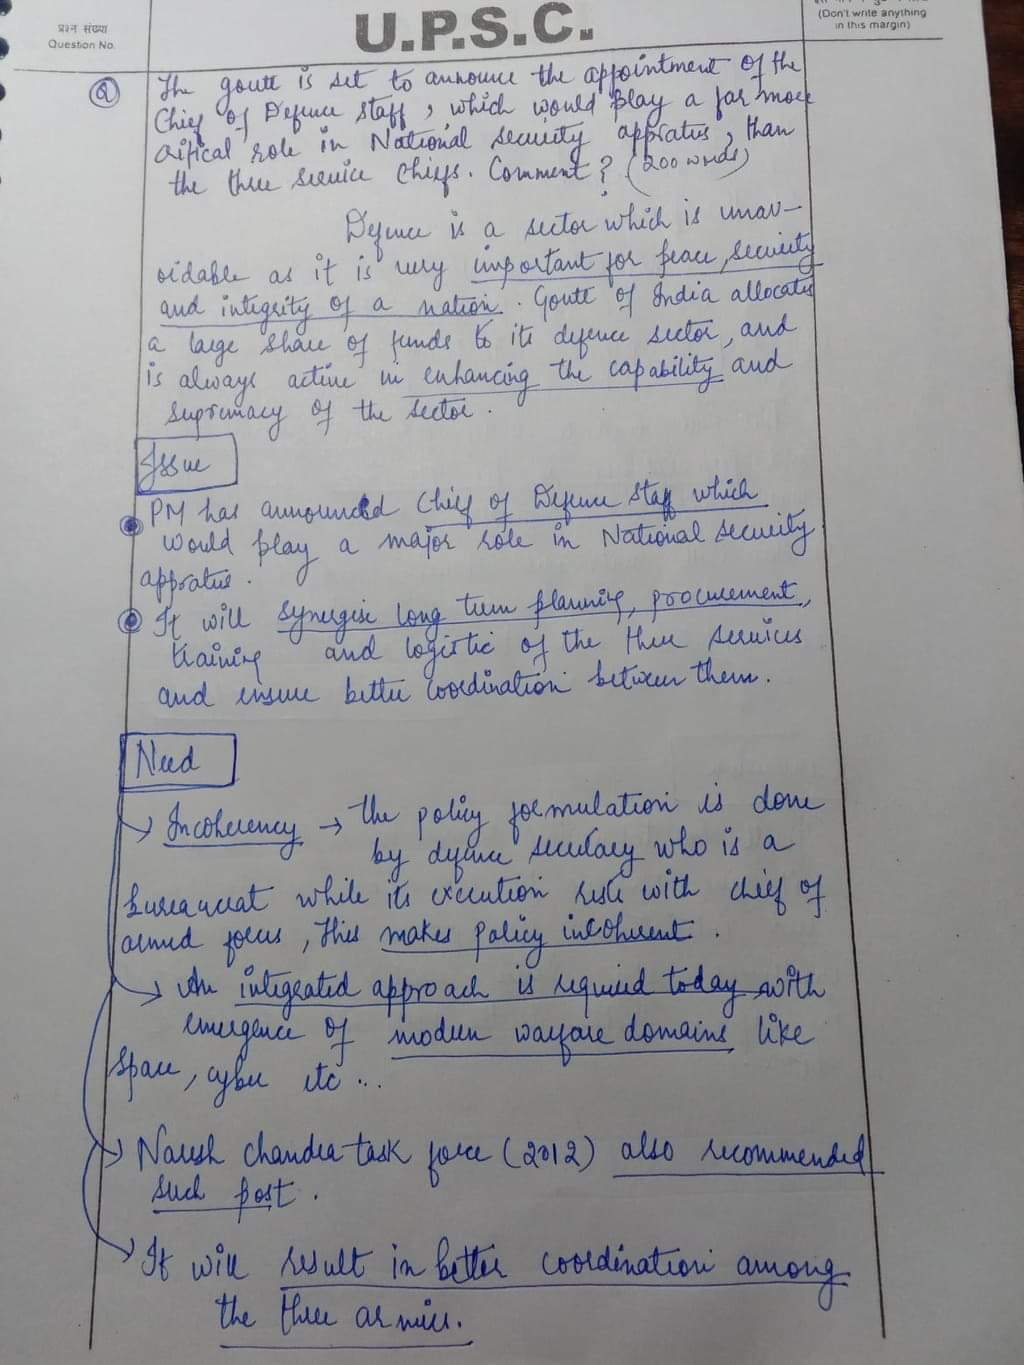 प्रश्न संख्या
Question No.
U.P.S.C.
(Don't write anything
in this margin)
Q
The govtt is set to announce the appointment of the
Chief of Defence Staff, which would play a far more
critical role in National security appratus, than
the three service chiefs. Comment? (200 words)
Defence is a sector which is unav-
oidable as it is very important for peace, security
and integrity of a nation. Govtt of India allocates
a large share of funds to its defence sector, and
is always active in enhancing the capability and
supremacy of the sector.
Issue
PM has announced Chief of Defence Staff which
would play a major role in National security
appratus.
It will synergise long term planning, procurement,
training and logistic of the three services
and ensure better coordination between them.
Need
Incoherency → the policy formulation is done
by defence secretary who is a
bureaucrat while its execution rests with chief of
armed forces, this makes policy incoherent.
An integrated approach is required today with
emergence of modern warfare domains like
space, cyber etc...
Naresh chandra task force (2012) also recommended
such post.
It will result in better coordination among
the three armies.